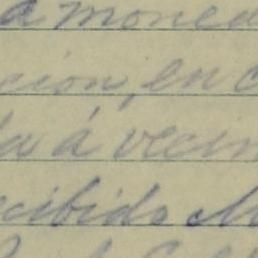 a moned
cion, en c
da á vecin
ecibido